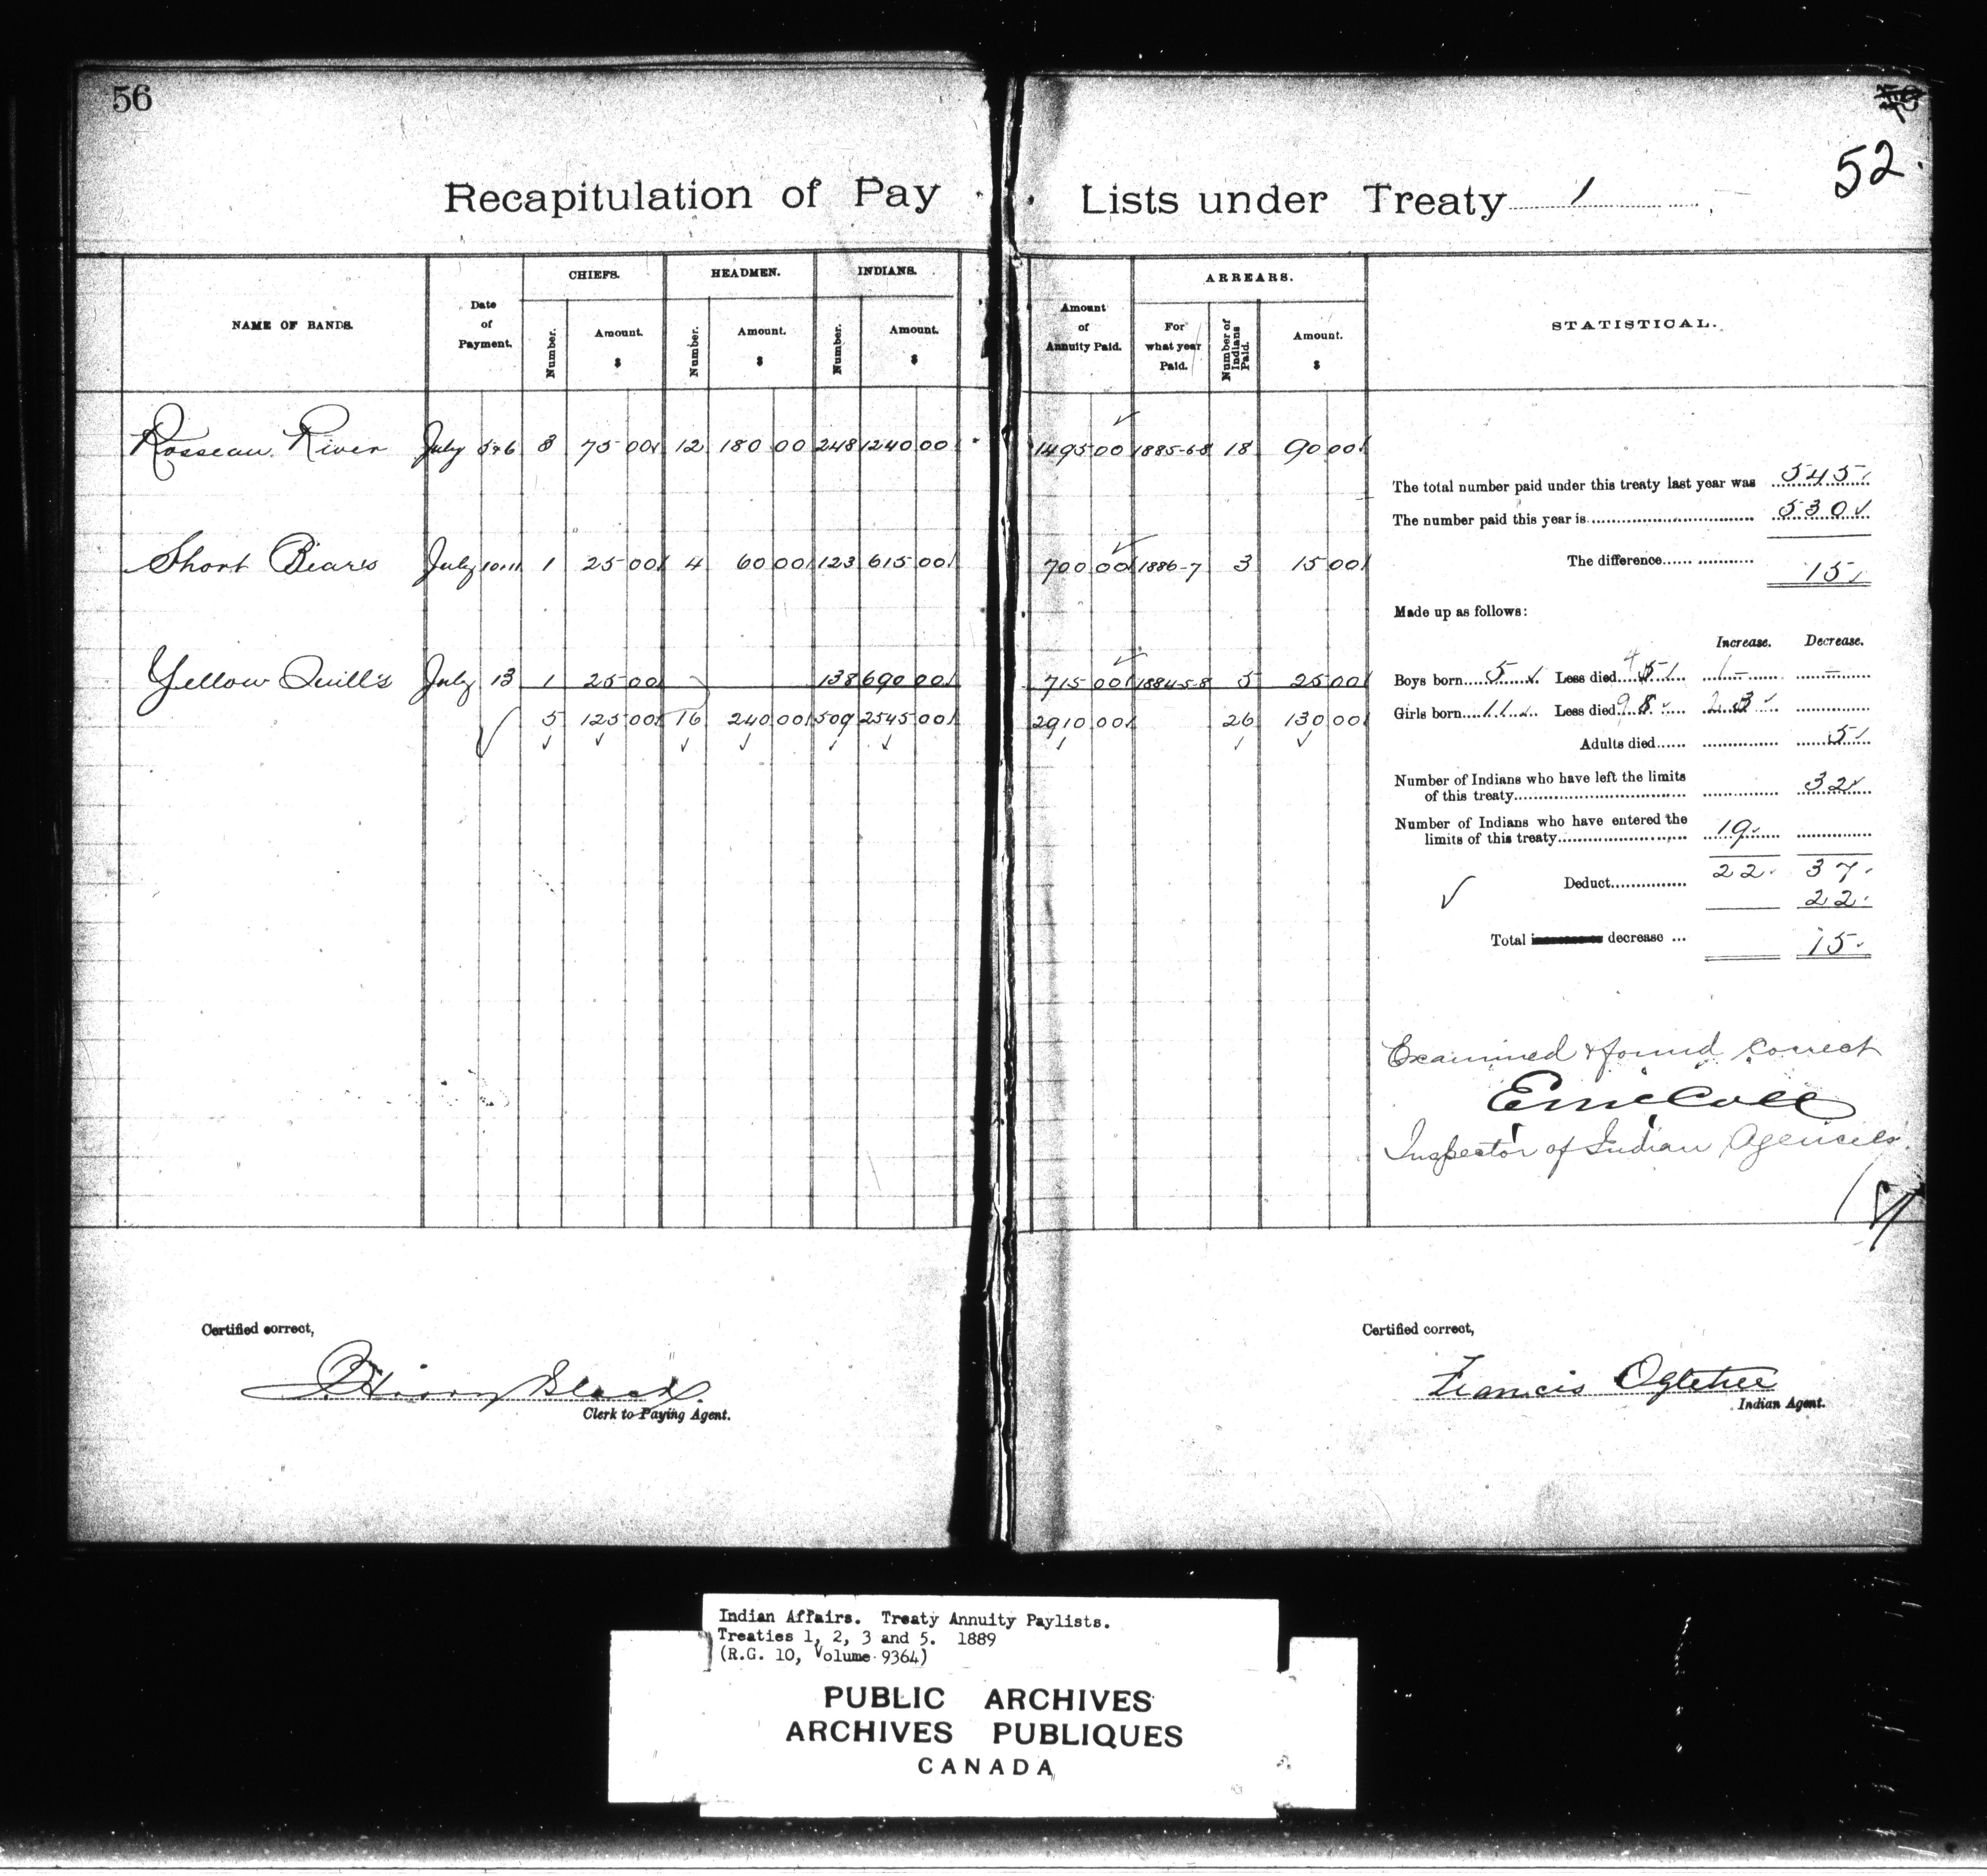 56
52.
Recapitulation of Pay Lists under Treaty 1
NAME OF BANDS. Date of Payment. CHIEFS. Number. Amount. $ HEADMEN. Number. Amount. $ INDIANS. Number. Amount. $ Amount of Annuity Paid. ARREARS. For what year Paid. Number of Indians Paid. Amount. $ STATISTICAL.
Rosseau River July 5+6 3 75 00 12 180 00 248 1240 00 1495 00 1885-6-8 18 90 00
Short Bears July 10.11 1 25 00 4 60 00 123 615 00 700 00 1886-7 3 15 00
Yellow Quill's July 13 1 25 00 138 690 00 715 00 1884-5-8 5 25 00
5 125 00 16 240 00 509 2545 00 2910 00 26 130 00
The total number paid under this treaty last year was 545
The number paid this year is 530
The difference 15
Made up as follows:
Increase. Decrease.
Boys born 5 Less died 4 5 1 –
Girls born 11 Less died 9 8 2 3
Adults died 5
Number of Indians who have left the limits
of this treaty 32
Number of Indians who have entered the
limits of this treaty 19
22. 37.
Deduct 22.
Total decrease 15.
Examined & found correct
Inspector of Indian Agencies
Certified correct,
Black
Clerk to Paying Agent.
Certified correct,
Francis Ogletree
Indian Agent.
Indian Affairs. Treaty Annuity Paylists.
Treaties 1, 2, 3 and 5. 1889
(R.G. 10, Volume 9364)
PUBLIC ARCHIVES
ARCHIVES PUBLIQUES
CANADA